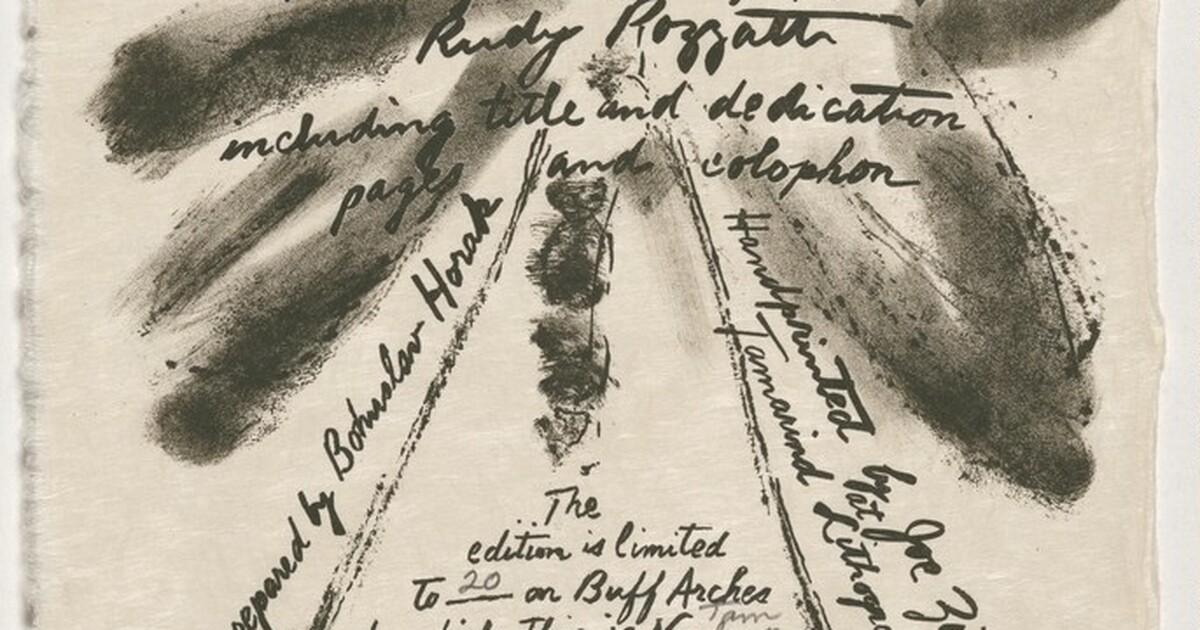 Rudy Pozzatti
including title and dedication
pages and colophon
prepared by Bohuslav Horak
Handprinted by Joe
at
Tamarind
The
edition is limited
To 20 on Buff Arches
Tam